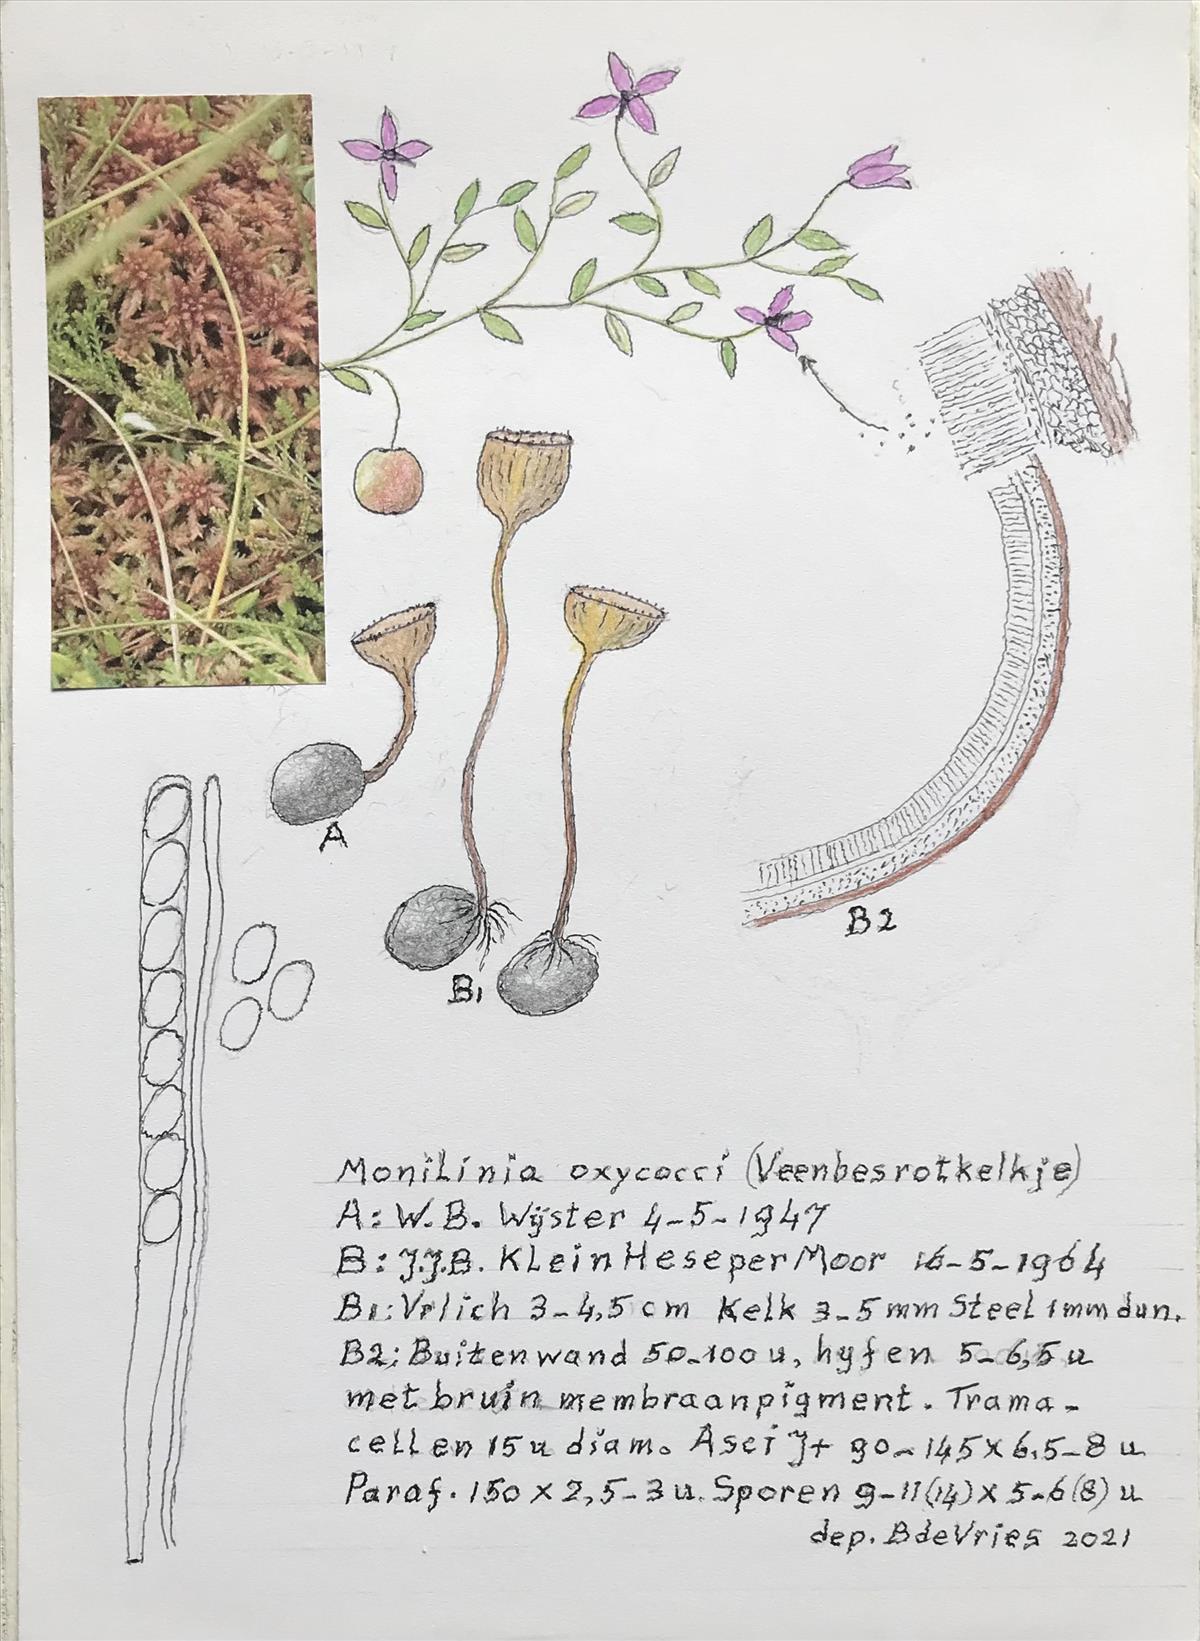 A
B1
B2
Monilinia oxycocci (Veenbesrotkelkje)
A: W.B. Wijster 4-5-1947
B: J.J.B. Klein Heseper Moor 16-5-1964
B1: Vrlich 3-4,5 cm Kelk 3-5 mm Steel 1mm dun.
B2: Buitenwand 50-100 u, hyfen 5-6,5 u
met bruin membraanpigment. Trama-
cellen 15 u diam. Asci J+ 90-145 x 6,5-8 u
Paraf. 150 x 2,5-3 u. Sporen 9-11(14) x 5-6(8) u
dep. B de Vries 2021